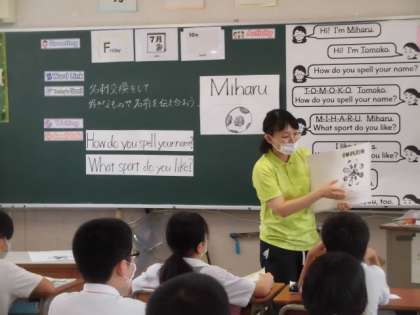 Greeting
Friday
7月
Activity
Word Link
Today's Goal
名刺交換をして
好きなもので名前を伝え合おう。
Miharu
How do you spell your name?
What sport do you like?
Hi! I'm Miharu.
Hi! I'm Tomoko.
How do you spell your name?
T-O-M-O-K-O. Tomoko.
How do you spell your name?
M-I-H-A-R-U. Miharu.
What sport do you like?
I like
Miharu.
you like?
you, too.